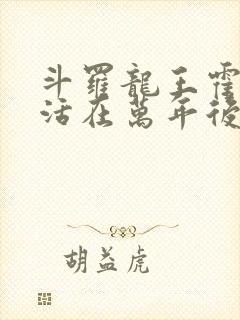 斗羅龍王霍
活在萬年後
胡益虎